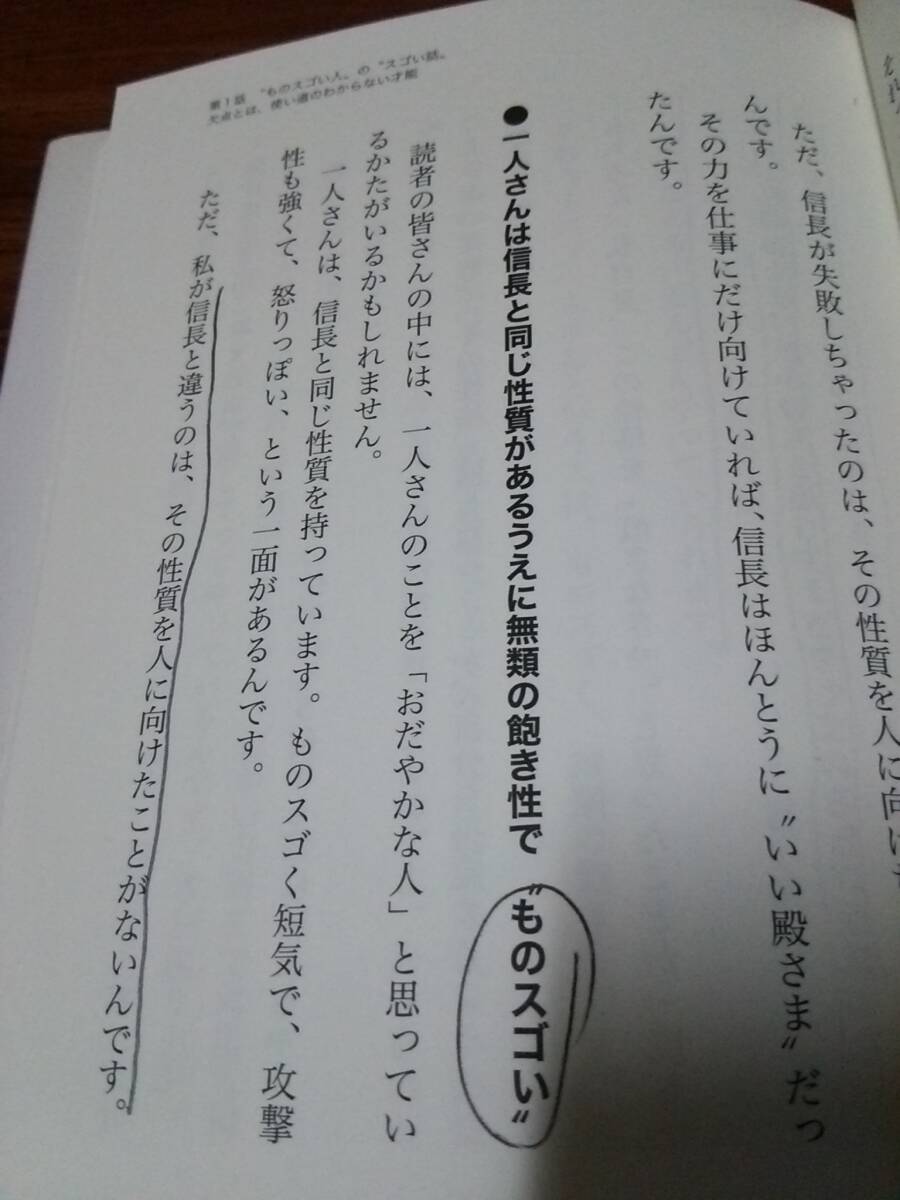 第1話 〝ものスゴい人〟の〝スゴい話〟
欠点とは、使い道のわからない才能
ただ、信長が失敗しちゃったのは、その性質を人に向け
んです。
その力を仕事にだけ向けていれば、信長はほんとうに〝いい殿さま〟だっ
たんです。
●一人さんは信長と同じ性質があるうえに無類の飽き性で〝ものスゴい〟
読者の皆さんの中には、一人さんのことを「おだやかな人」と思ってい
るかたがいるかもしれません。
一人さんは、信長と同じ性質を持っています。ものスゴく短気で、攻撃
性も強くて、怒りっぽい、という一面があるんです。
ただ、私が信長と違うのは、その性質を人に向けたことがないんです。